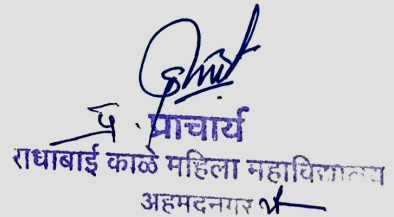 प्र. प्राचार्य
राधाबाई काळे महिला महाविद्यालय
अहमदनगर